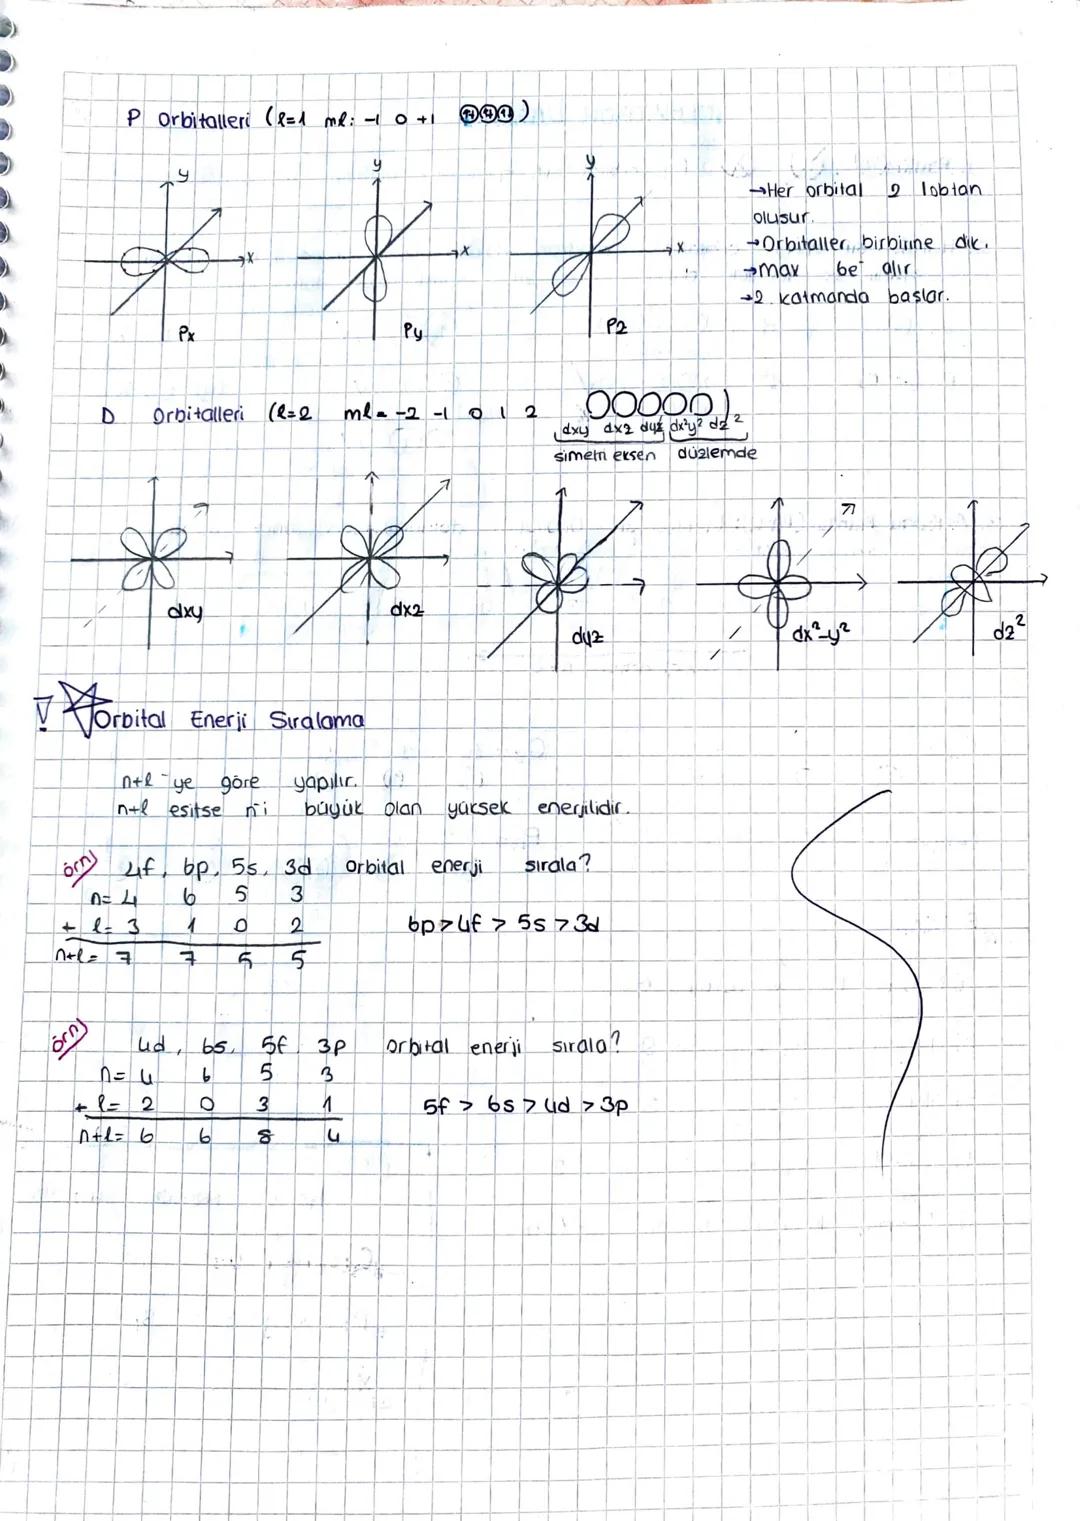 P Orbitalleri (l=1 ml: -1 0 +1 )
y
y
y
x
x
x
Px
Py
Pz
→Her orbital 2 lobtan
oluşur.
→Orbitaller birbirine dik.
→max 6e⁻ alır.
→2. katmanda başlar.
D Orbitalleri (l=2 ml= -2 -1 0 1 2 )
dxy dxz dyz dx²y² dz²
simetri eksen düzlemde
dxy
dxz
dyz
dx²-y²
dz²
! Orbital Enerji Sıralama
n+l -ye göre yapılır.
n+l eşitse n'i büyük olan yüksek enerjilidir.
örn) 4f, 6p, 5s, 3d orbital enerji sırala?
n= 4 6 5 3
+ l= 3 1 0 2
6p > 4f > 5s > 3d
n+l= 7 7 5 5
örn) 4d, 6s, 5f, 3p orbital enerji sırala?
n= 4 6 5 3
+ l= 2 0 3 1
5f > 6s > 4d > 3p
n+l= 6 6 8 4